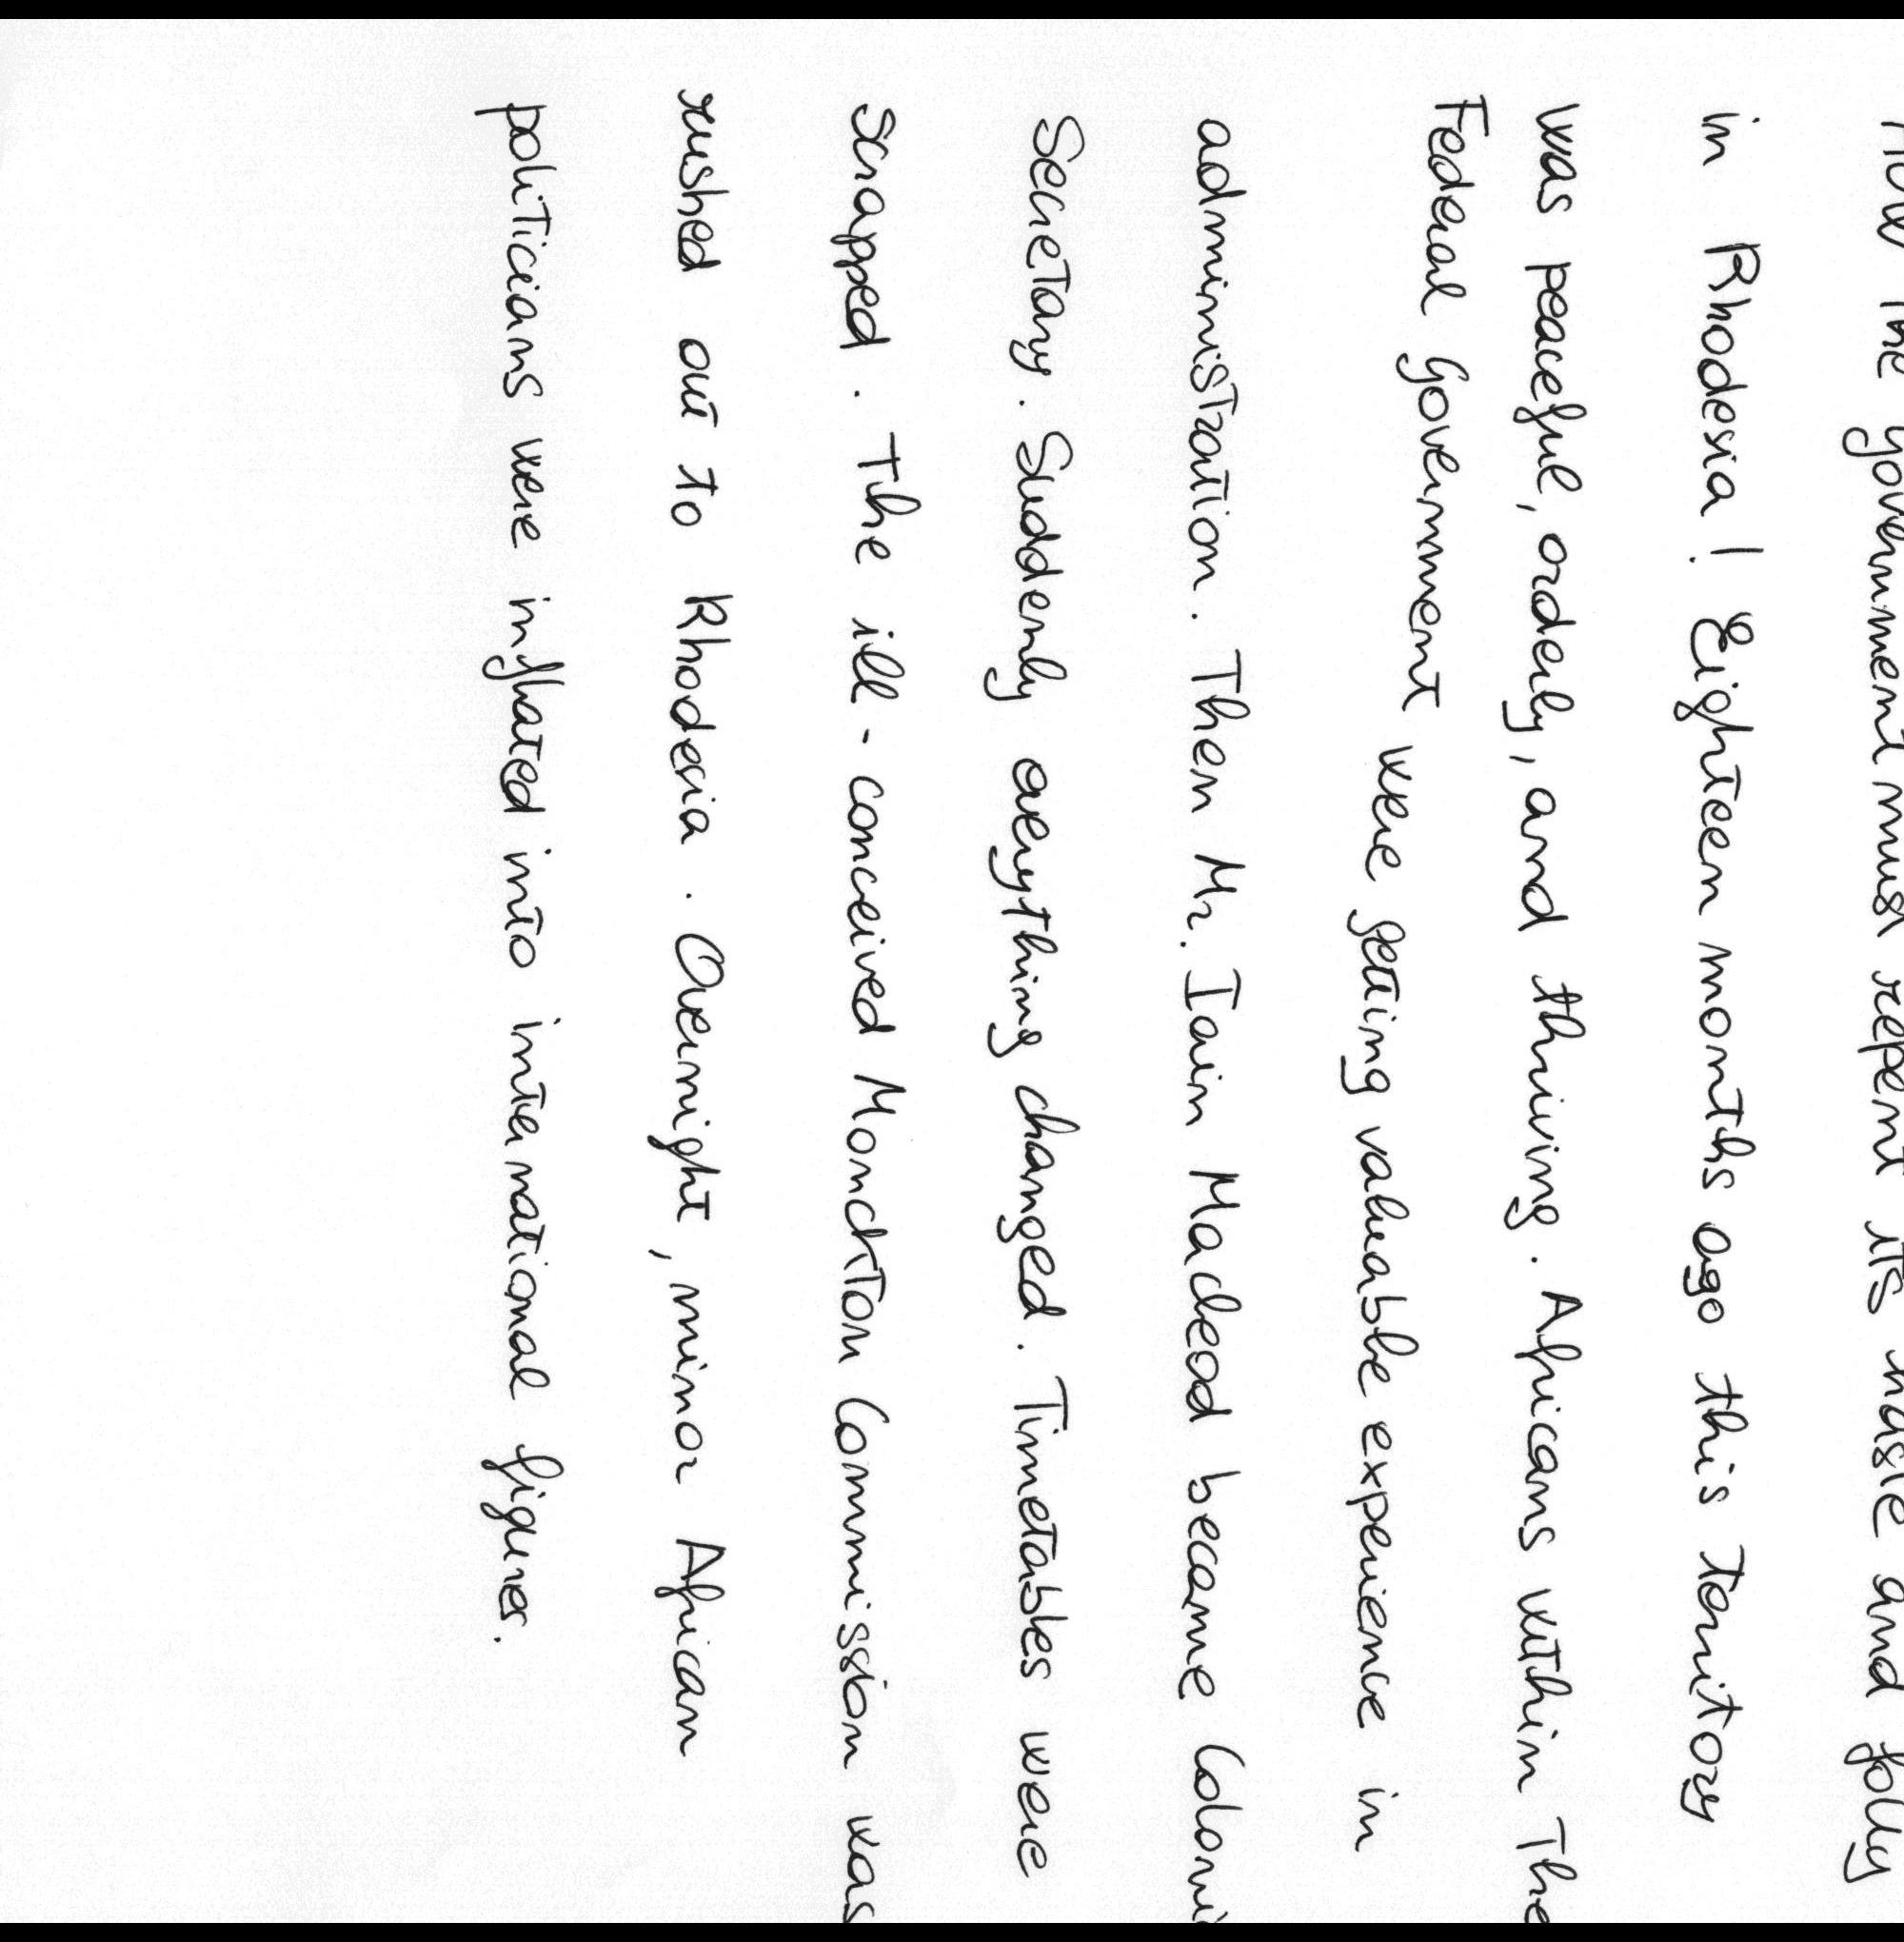 How the government must repent its haste and folly
in Rhodesia! Eighteen months ago this territory
was peaceful, orderly, and thriving. Africans within the
Federal Government were getting valuable experience in
administration. Then Mr. Iain Macleod became Coloni
Secretary. Suddenly everything changed. Timetables were
scrapped. The ill-conceived Monckton Commission was
rushed out to Rhodesia. Overnight, minor African
politicians were inflated into international figures.